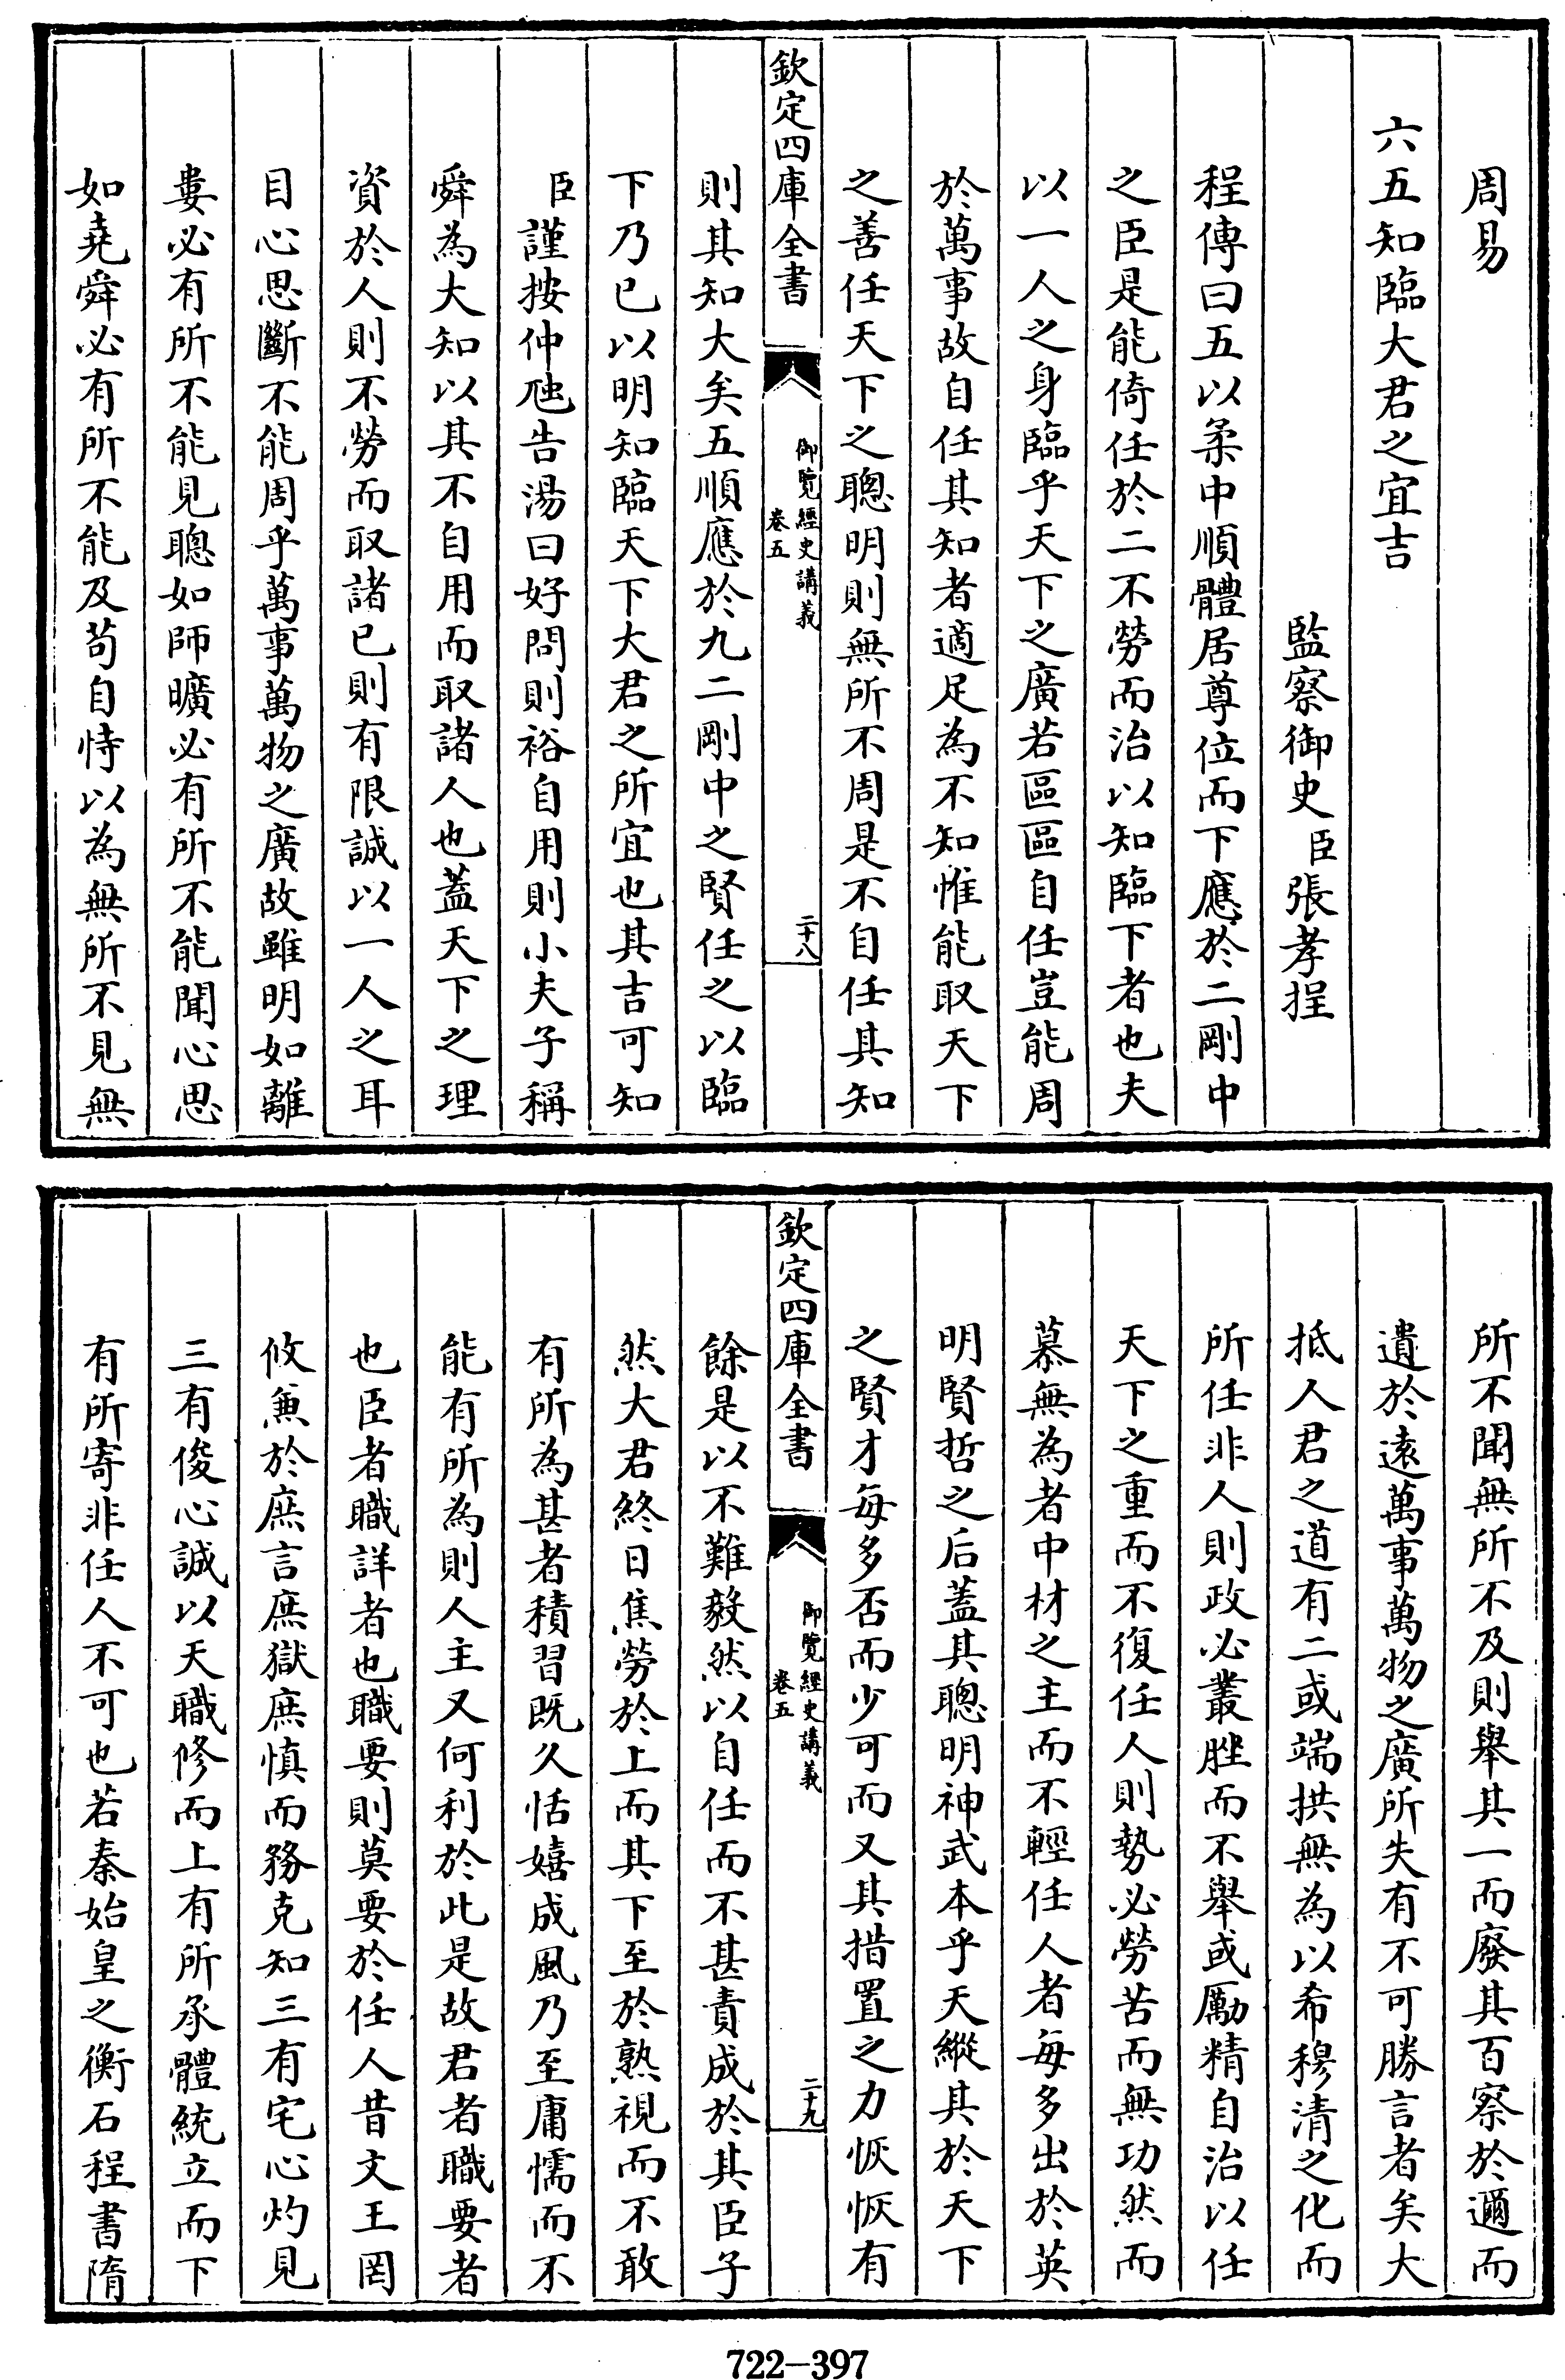 周易
六五知臨大君之宜吉
監察御史臣張孝捏
程傳曰五以柔中順體居尊位而下應於二剛中
之臣是能倚任於二不勞而治以知臨下者也夫
以一人之身臨乎天下之廣若區區自任豈能周
於萬事故自任其知者適足為不知惟能取天下
之善任天下之聰明則無所不周是不自任其知
欽定四庫全書
御覽經史講義
卷五
二十八
則其知大矣五順應於九二剛中之賢任之以臨
下乃已以明知臨天下大君之所宜也其吉可知
臣謹按仲虺告湯曰好問則裕自用則小夫子稱
舜為大知以其不自用而取諸人也蓋天下之理
資於人則不勞而取諸已則有限誠以一人之耳
目心思斷不能周乎萬事萬物之廣故雖明如離
婁必有所不能見聰如師曠必有所不能聞心思
如堯舜必有所不能及苟自恃以為無所不見無
所不聞無所不及則舉其一而廢其百察於邇而
遺於遠萬事萬物之廣所失有不可勝言者矣大
抵人君之道有二或端拱無為以希穆清之化而
所任非人則政必叢脞而不舉或勵精自治以任
天下之重而不復任人則勢必勞苦而無功然而
慕無為者中材之主而不輕任人者每多出於英
明賢哲之后蓋其聰明神武本乎天縱其於天下
之賢才每多否而少可而又其措置之力恢恢有
欽定四庫全書
御覽經史講義
卷五
二十九
餘是以不難毅然以自任而不甚責成於其臣子
然大君終日焦勞於上而其下至於熟視而不敢
有所為甚者積習既久恬嬉成風乃至庸懦而不
能有所為則人主又何利於此是故君者職要者
也臣者職詳者也職要則莫要於任人昔文王罔
攸兼於庶言庶獄庶慎而務克知三有宅心灼見
三有俊心誠以天職修而上有所承體統立而下
有所寄非任人不可也若秦始皇之衡石程書隋
722—397